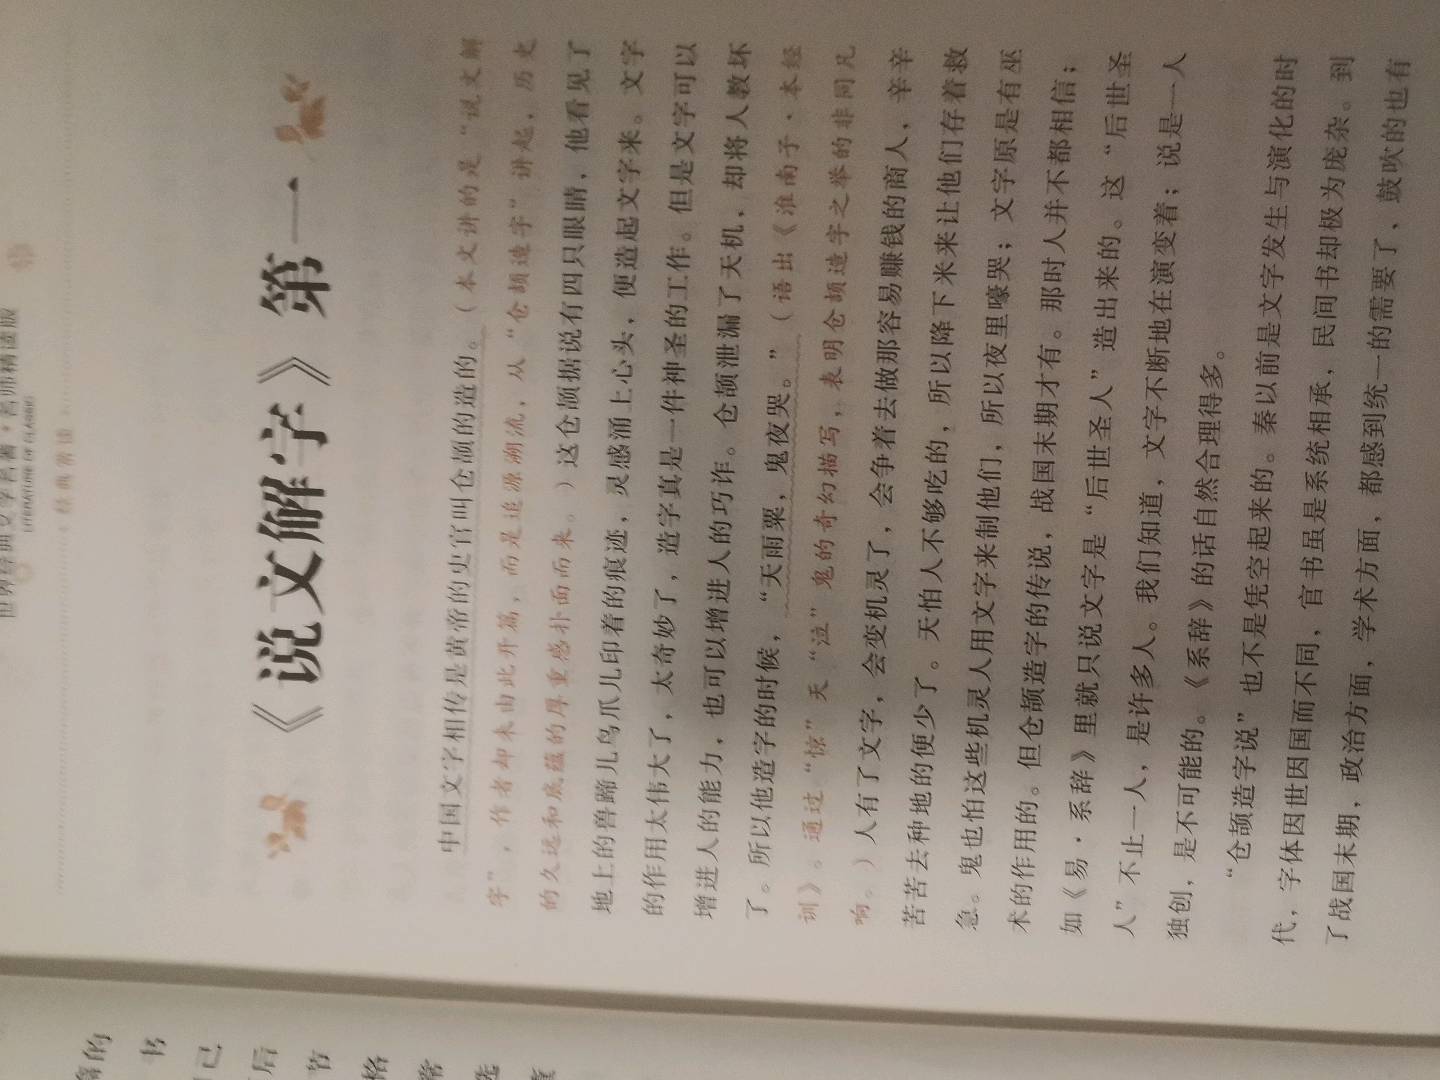 世界经典文学名著·名师精读版
LITERATURE OF CLASSIC
经典常谈
《说文解字》第一
中国文字相传是黄帝的史官叫仓颉的造的。（本文讲的是“说文解
字”，作者却未由此开篇，而是追源溯流，从“仓颉造字”讲起，历史
的久远和底蕴的厚重感扑面而来。）这仓颉据说有四只眼睛，他看见了
地上的兽蹄儿鸟爪儿印着的痕迹，灵感涌上心头，便造起文字来。文字
的作用太伟大了，太奇妙了，造字真是一件神圣的工作。但是文字可以
增进人的能力，也可以增进人的巧诈。仓颉泄漏了天机，却将人教坏
了。所以他造字的时候，“天雨粟，鬼夜哭。”（语出《淮南子·本经
训》。通过“惊”天“泣”鬼的奇幻描写，表明仓颉造字之举的非同凡
响。）人有了文字，会变机灵了，会争着去做那容易赚钱的商人，辛辛
苦苦去种地的便少了。天怕人不够吃的，所以降下米来让他们存着救
急。鬼也怕这些机灵人用文字来制他们，所以夜里嚎哭；文字原是有巫
术的作用的。但仓颉造字的传说，战国末期才有。那时人并不都相信；
如《易·系辞》里就只说文字是“后世圣人”造出来的。这“后世圣
人”不止一人，是许多人。我们知道，文字不断地在演变着；说是一人
独创，是不可能的。《系辞》的话自然合理得多。
“仓颉造字说”也不是凭空起来的。秦以前是文字发生与演化的时
代，字体因世因国而不同，官书虽是系统相承，民间书却极为庞杂。到
了战国末期，政治方面，学术方面，都感到统一的需要了，鼓吹的也有
的
书
已
后
节
格
常